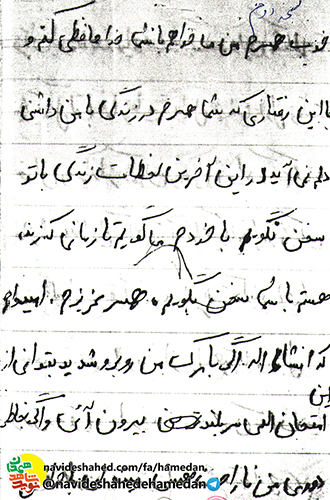 صفحه دوم
خوب همسرم من می‌خواهم با شما خداحافظی کنم و
با این رفتاری که شما همسرم در زندگی با من داشتی
دلم نمی‌آید در این آخرین لحظات زندگی با تو
سخن نگویم با خودم می‌گویم تا زمانی که زنده
هستم با شما سخن بگویم، همسر عزیزم، امیدوارم
که انشاءالله اگر با مرگ من روبرو شدید بتوانی از این
امتحان الهی سربلند بیرون آئی و اگر بخاطر
من
navideshahed.com/fa/hamedan
@navideshahedehamedan